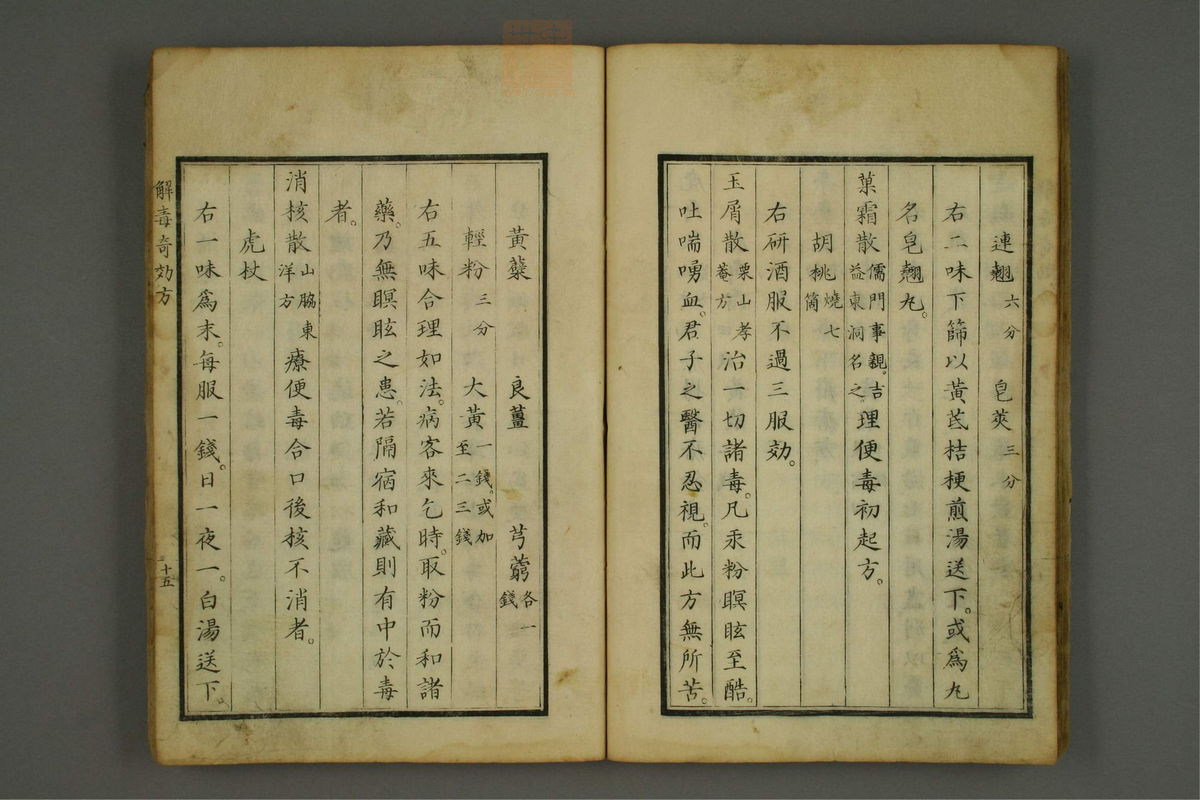 連翹六分　皂莢三分
右二味下篩以黃芪桔梗煎湯送下。或爲丸
名皂翹丸。
菓霜散儒門事親。吉益東洞名之。理便毒初起方。
胡桃燒七箇
右研酒服不過三服効。
玉屑散栗山孝菴方治一切諸毒。凡汞粉瞑眩至酷。
吐喘嘔血。君子之醫不忍視。而此方無所苦。
黃蘗　良薑　芎藭各一錢
輕粉三分　大黃一錢。或加至二三錢
右五味合理如法。病客來乞時。取粉而和諸
藥。乃無瞑眩之患。若隔宿和藏則有中於毒
者。
消核散山脇東洋方療便毒合口後核不消者。
虎杖
右一味爲末。每服一錢。日一夜一。白湯送下。
解毒奇効方
三十五